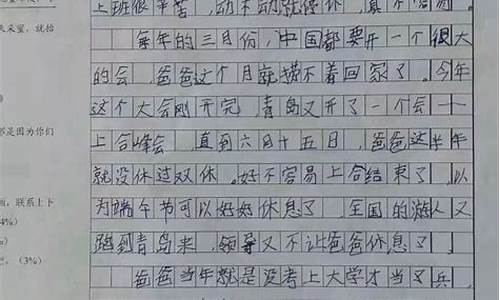 上班很辛苦,动不动就停休,真不容易。
每年的三月份,中国都要开一个很大
的会 爸爸这个月就捞不着回家了。今年
这个大会刚开完,青岛又开了一个会——
上合峰会 直到六月十五日,爸爸这半年
就没休过双休。好不容易上合结束了,以
为端午节可以好好休息了 全国的游人又
跑到青岛来,领导又不让爸爸休息了。
爸爸当年就是没考上大学才当了兵,
是因为你们
联系上下
4%)
(3%)